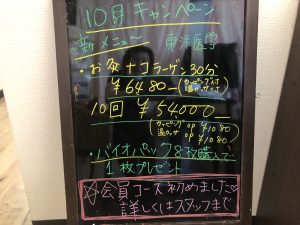 10月キャンペーン
新メニュー 東洋医学
・お灸+コラーゲン30分
¥6480
10回 ¥54000
カッピング op ¥1080
温カッサ op ¥1080
・バイオパック8枚購入で
1枚プレゼント
会員コース初めました♡
詳しくはスタッフまで